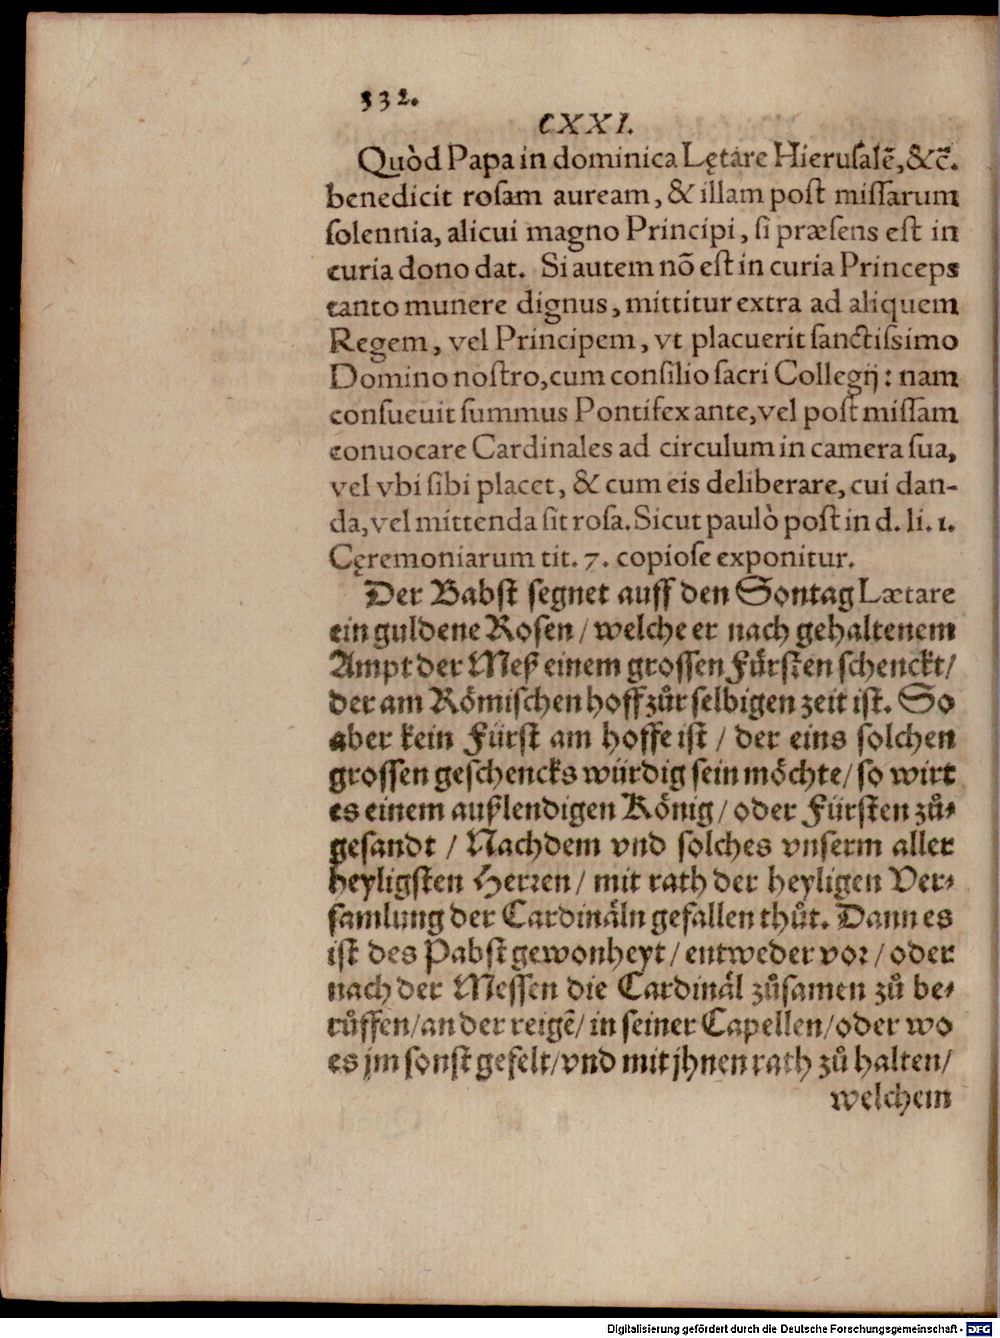 332.
CXXI.
Quòd Papa in dominica Lętare Hieruſalē, &c̄.
benedicit roſam auream, & illam poſt miſſarum
ſolennia, alicui magno Principi, ſi præſens eſt in
curia dono dat. Si autem nō eſt in curia Princeps
tanto munere dignus, mittitur extra ad aliquem
Regem, vel Principem, vt placuerit ſanctiſsimo
Domino noſtro, cum conſilio ſacri Collegij: nam
conſueuit ſummus Pontifex ante, vel poſt miſſam
conuocare Cardinales ad circulum in camera ſua,
vel vbi ſibi placet, & cum eis deliberare, cui dan-
da, vel mittenda ſit roſa. Sicut paulò poſt in d. li. 1.
Cęremoniarum tit. 7. copioſe exponitur.
Der Babſt ſegnet auff den Sontag Lætare
ein guldene Roſen / welche er nach gehaltenem
Ampt der Meß einem groſſen Fürſten ſchenckt /
der am Römiſchen hoff zůr ſelbigen zeit iſt. So
aber kein Fürſt am hoffe iſt / der eins ſolchen
groſſen geſchencks würdig ſein möchte / ſo wirt
es einem außlendigen König / oder Fürſten zů⸗
geſandt / Nachdem vnd ſolches vnſerm aller
heyligſten Herꝛen / mit rath der heyligen Ver⸗
ſamlung der Cardinäln gefallen thůt. Dann es
iſt des Pabſt gewonheyt / entweder voꝛ / oder
nach der Meſſen die Cardinäl zůſamen zů be⸗
růffen / an der reigē / in ſeiner Capellen / oder wo
es jm ſonſt gefelt / vnd mit jhnen rath zů halten /
welchem
Digitalisierung gefördert durch die Deutsche Forschungsgemeinschaft - DFG